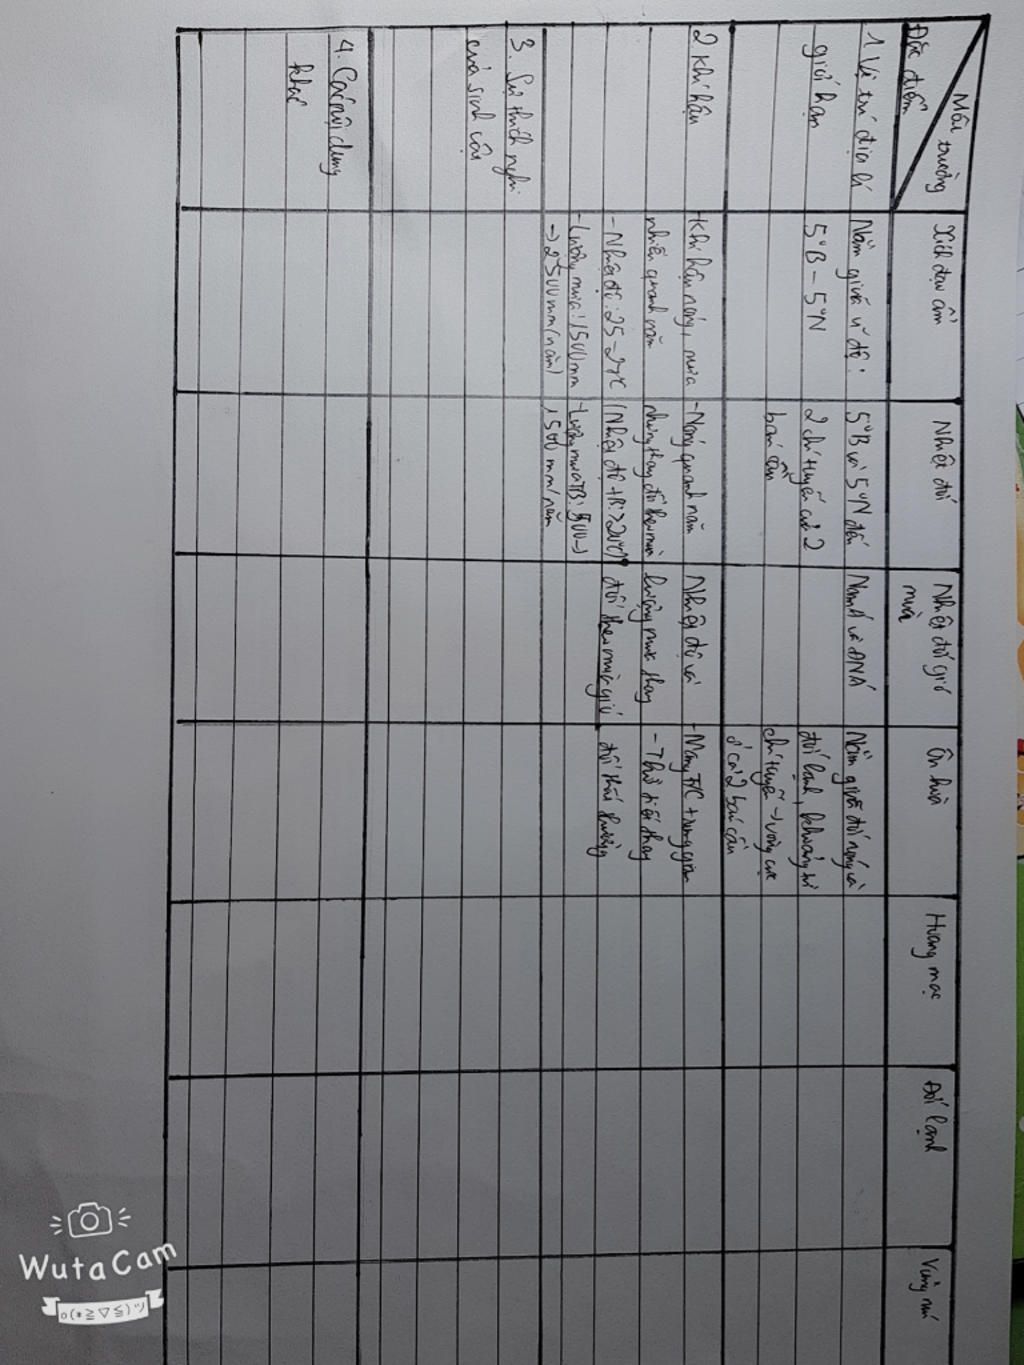 Môi trường
Đặc điểm
Xích đạo ẩm
Nhiệt đới
Nhiệt đới gió
mùa
Ôn hoà
Hoang mạc
Đới lạnh
Vùng núi
1 Vị trí địa lí
giới hạn
Nằm giữa vĩ độ:
5°B - 5°N
5°B và 5°N đến
2 chí tuyến của 2
bán cầu
Nam Á và ĐNÁ
Nằm giữa đới nóng và
đới lạnh, khoảng từ
chí tuyến → vòng cực
ở cả 2 bán cầu
2 Khí hậu
- Khí hậu nóng, mưa
nhiều quanh năm
- Nhiệt độ: 25 - 27°C
- Lượng mưa: 1500mm
→ 2500mm(năm)
- Nóng quanh năm
nhưng thay đổi theo mùa
(Nhiệt độ TB: >20°C)
- Lượng mưa TB: 500→
1500mm/năm
Nhiệt độ và
lượng mưa thay
đổi theo mùa gió
- Mang T/C trung gian
- Thời tiết thay
đổi thất thường
3. Sự thích nghi
của sinh vật
4. Các nội dung
khác
WutaCam